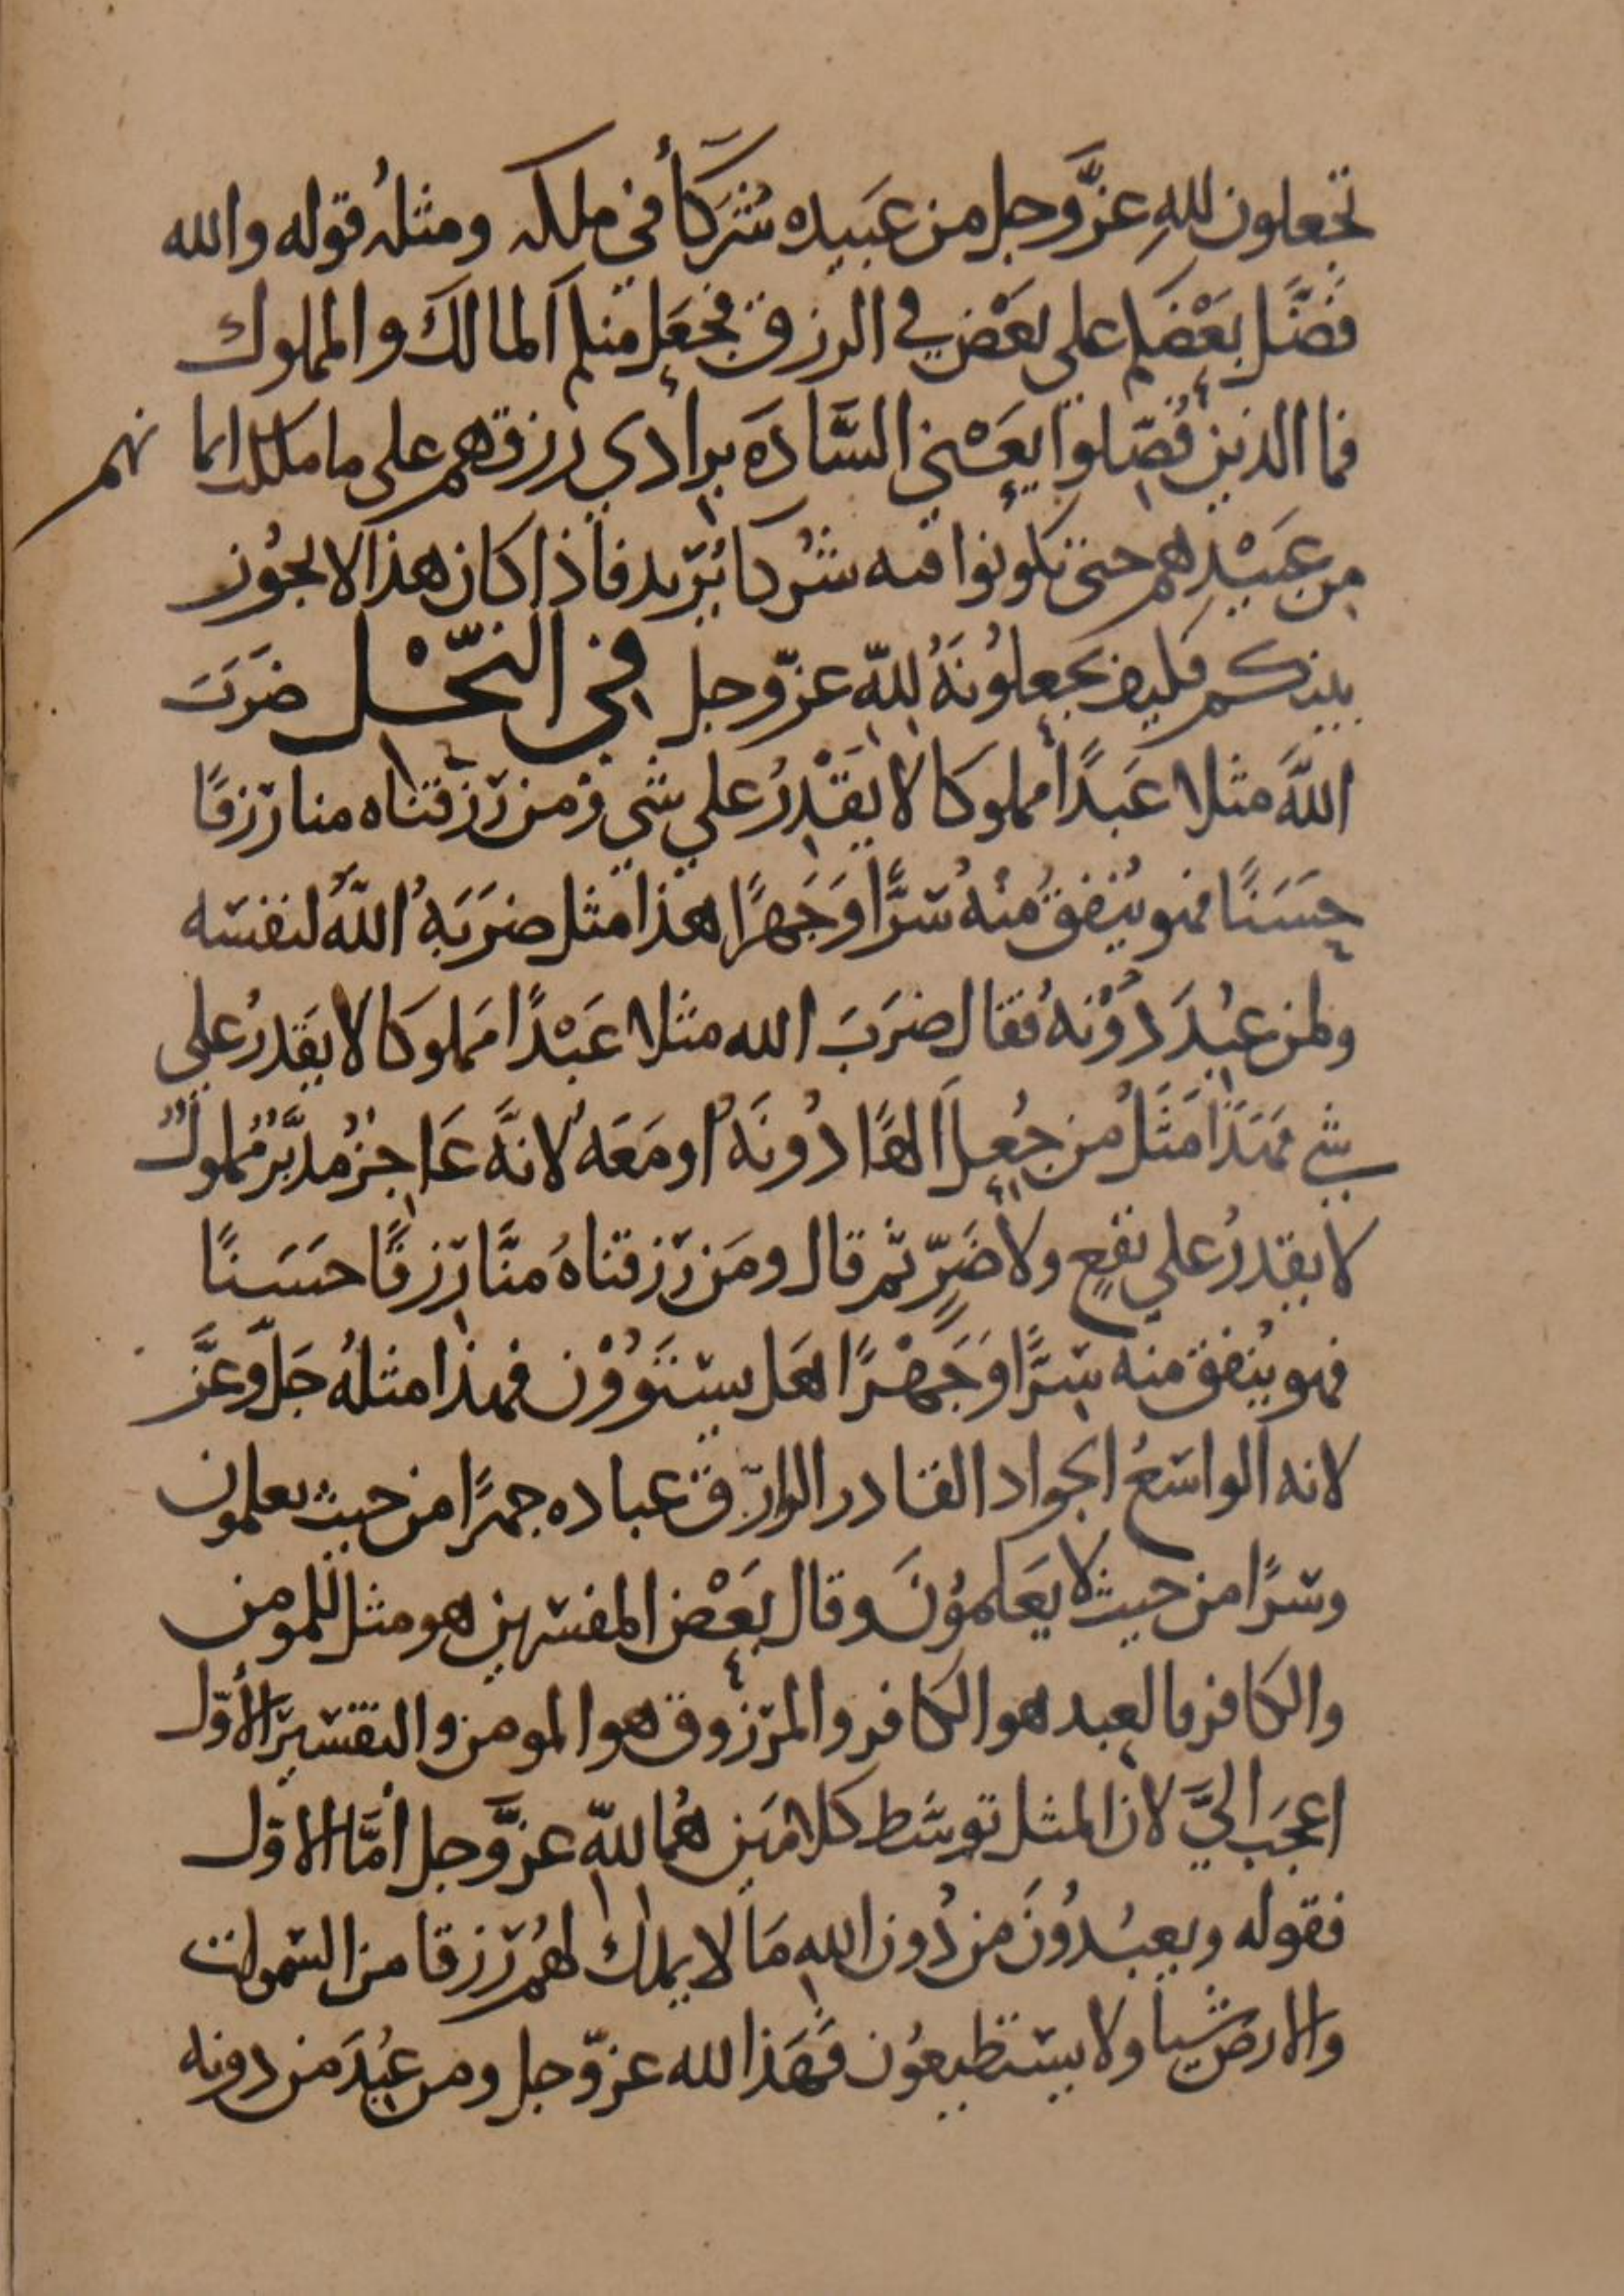 تجعلون للهِ عزَّوجل من عَبيده شُركاأَ في ملكه ومثلهُ قوله والله
فَضَّل بَعْضَكم على بَعْض في الرزق فجعَل منكم المالكَ والمملوك
فما الذين فُضّلوا يَعْني السَّادَه برادي رزقهم على ما ملكت ايمانهم
من عَبيْدهم حتى تكونوا فيه شُركا يُرّيد فاذا كان هذا لا يجُوز
بينكم فكيف تجعلُونَهُ للهّ عزّوجل في النّحْل ضَرَبَ
اللهَّ مثلا عَبدًا مملوكا لا يَقْدِرُ على شي ومن رَزقناه منا رزقًا
حَسَنًا فهو يُنفقُ منْهُ سرًّا وَجَهرًا هذا مثل ضرَبَهُ اللهُّ لنفسه
ولمن عُبِدَ دُوْنهُ فقال ضرَبَ الله مثلا عَبْدًا مَملوكا لا يَقدرُ على
شي فَهَذَا مَثَلُ من جُعِلَ الهًا دُونَهُ او مَعَهُ لانهَّ عَاجزُ مُدبَّرُ مُملوكُ
لا يقدرُ على نفعٍ ولا ضَرٍّ ثم قال ومَن رَزقناهُ منَّا رِزقًا حسَنًا
فهو يُنفق منه سِرًّا وَجَهْرًا هَل يستَوُوْن فهذا مثلهُ جَلَّ وعَزَّ
لانه الواسعُ الجواد القادر الرازق عباده جهرًا من حيث يعلمون
وسرًا من حيث لا يعَلموُنَ وقال بَعْض المفسرين هو مثل للمومن
والكافر فالعبد هو الكافر والمرزوق هو المومن والتفسير الأوّل
اعجَب اليَّ لان المثل توسَّط كلامَين هُما للهّ عزَّوجل أمَّا الاول
فقوله ويعبُدُونَ من دُون اللهِ مَا لا يملك لهُم رزقا من السموات
والارض شيأ ولا يستطيعُون فَهَذا لله عزّوجل ومن عُبِدَ من دونه